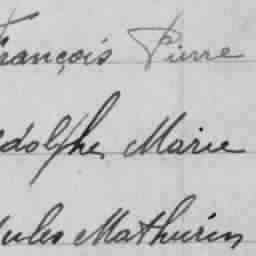 François Pierre
Adolphe Marie
Jules Mathurin